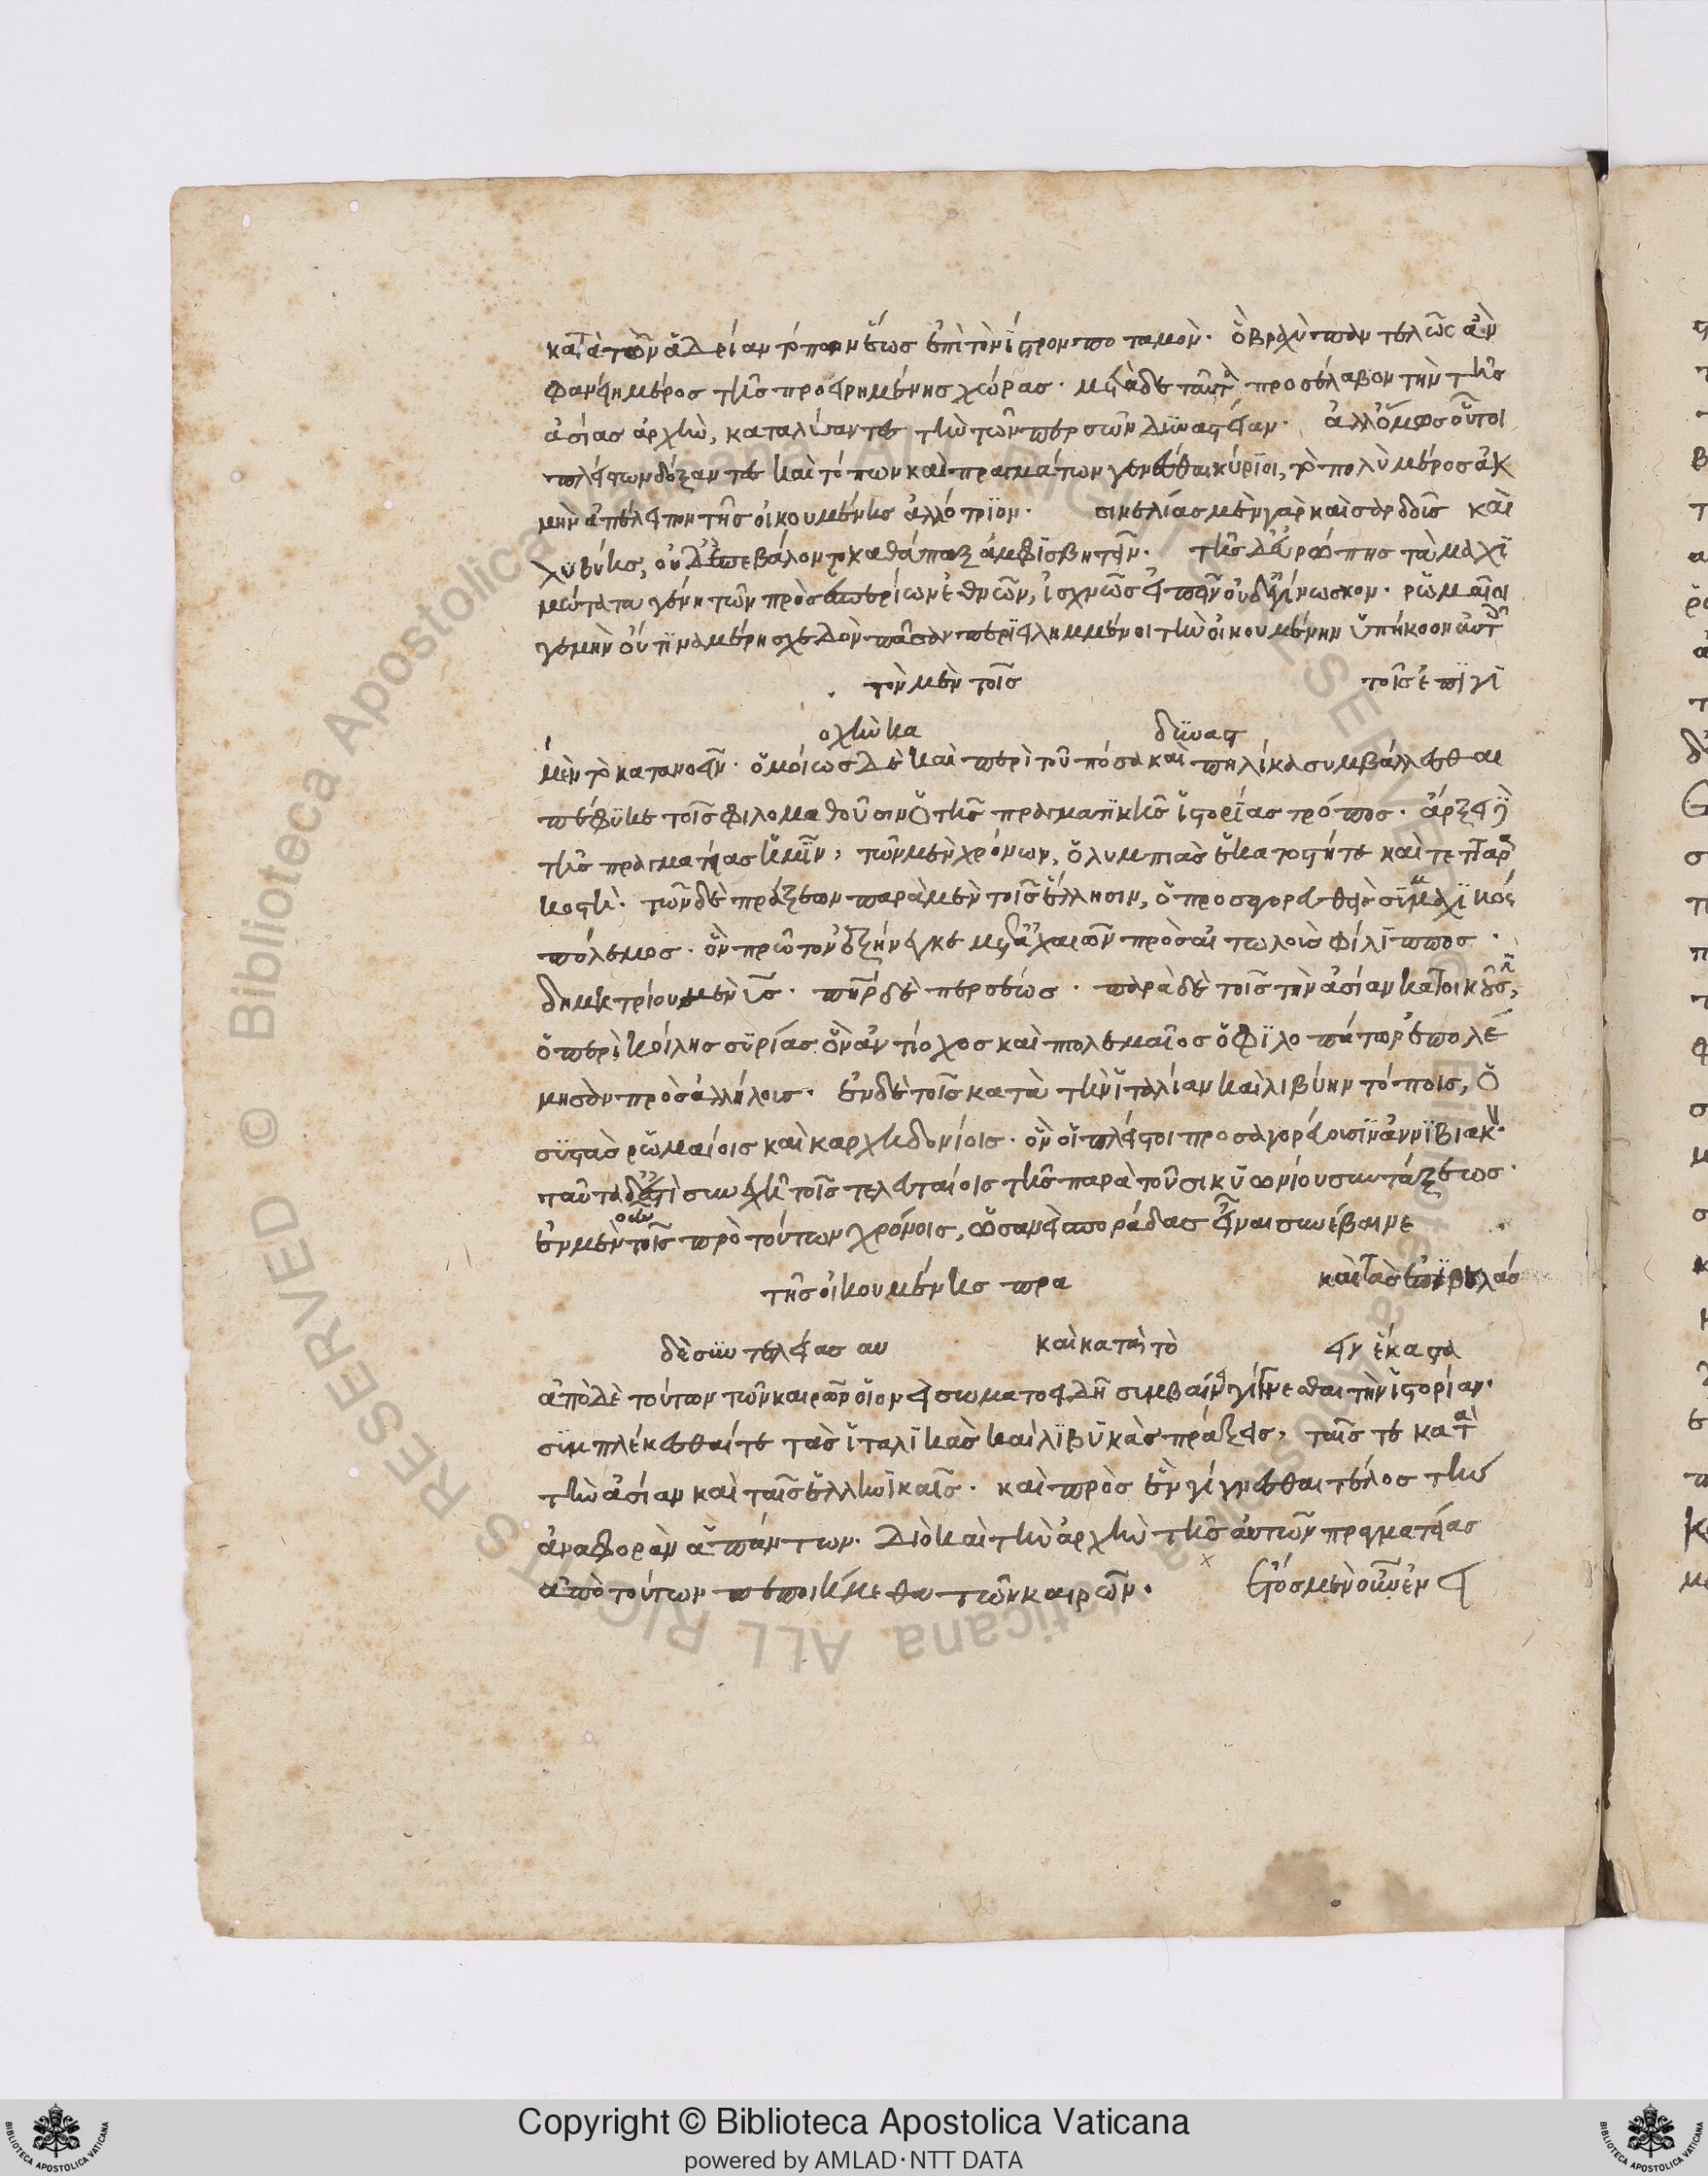 κατὰ τὸν ἀδρίαν τόπων ἕως ἐπὶ τὸν ἴστρον ποταμὸν. ὃ βραχὺ παντελῶς ἂν
φανείη μέρος τῆς προειρημένης χώρας. μετὰ δὲ ταῦτα προσέλαβον τὴν τῆς
ἀσίας ἀρχὴν, καταλύσαντες τὴν τῶν περσῶν δυναστείαν. ἀλλ' ὅμως οὗτοι
πλείστων δόξαντες καὶ τόπων καὶ πραγμάτων γενέσθαι κύριοι, τὸ πολὺ μέρος ἀκ
μὴν ἀπέλειπον τῆς οἰκουμένης ἀλλότριον. σικελίας μὲν γὰρ καὶ σαρδοῦς καὶ
λυβύης, οὐδ' ἐπεβάλοντο καθάπαξ ἀμφισβητεῖν. τῆς δ' εὐρώπης τὰ μαχι
μώτατα γένη τῶν προσεσπερίων ἐθνῶν, ἰσχνῶς εἰπεῖν οὐδ' ἐγίνωσκον. ῥωμαῖοί
γε μὴν οὔ τινα μέρη σχεδὸν πᾶσαν περιειλημμένοι τὴν οἰκουμένην ὑπήκοον αὐτοῖς
τὸν μὲν τοῖς τοῖς ἐπιγι
οχὴν κα δυνατ
μὲν τὸ κατανοεῖν. ὁμοίως δὲ καὶ περὶ τοῦ πόσα καὶ πηλίκα συμβάλλεσθαι
πέφυκε τοῖς φιλομαθοῦσιν ὁ τῆς πραγματικῆς ἱστορίας τρόπος. ἄρξει
τῆς πραγματείας ἡμῖν, τῶν μὲν χρόνων, ὀλυμπιὰς ἑκατοστή τε καὶ τετταρα
κοστὴ. τῶν δὲ πράξεων παρὰ μὲν τοῖς ἕλλησιν, ὁ προσαγορευθεὶς συμμαχικός
πόλεμος. ὃν πρῶτον ἐξήνεγκε μετ' ἀχαιῶν πρὸς αἰτωλοὺς φίλιππος.
δημητρίου μὲν υἱὸς. πατὴρ δὲ περσέως. παρὰ δὲ τοῖς τὴν ἀσίαν κατοικοῦσιν,
ὁ περὶ κοίλης συρίας ὃν ἀντίοχος καὶ πολεμαῖος ὁ φιλοπάτωρ ἐπολέ
μησαν πρὸς ἀλλήλους. ἐν δὲ τοῖς κατὰ τὴν ἰταλίαν καὶ λιβύην τόποις, ὁ
συστὰς ῥωμαίοις καὶ καρχηδονίοις. ὃν οἱ πλεῖστοι προσαγορεύουσιν ἀννιβιακόν.
ταῦτα δ' ἔστι συνεχῆ τοῖς τελευταίοις τῆς παρὰ τοῦ σικυωνίου συντάξεως.
ἐν μὲν οὖν τοῖς πρὸ τούτων χρόνοις, ὡσανεὶ σποράδας εἶναι συνέβαινε
τῆς οἰκουμένης πρα καὶ τὰς ἐπιβολάς
δὲ συντελείας αυ καὶ κατὰ τὸ ειν ἕκαστα
ἀπὸ δὲ τούτων τῶν καιρῶν οἷον εἰ σωματοειδῆ συμβαίνει γίνεσθαι τὴν ἱστορίαν.
συμπλέκεσθαί τε τὰς ἰταλικὰς καὶ λιβυκὰς πράξεις, ταῖς τε κατὰ
τὴν ἀσίαν καὶ ταῖς ἑλληνικαῖς. καὶ πρὸς ἓν γίγνεσθαι τέλος τὴν
ἀναφορὰν ἁπάντων. διὸ καὶ τὴν ἀρχὴν τῆς αὐτῶν πραγματείας
ἀπὸ τούτων πεποιήμεθα τῶν καιρῶν. ἑτὸς μὲν οὖν ἐν ει
Copyright © Biblioteca Apostolica Vaticana
powered by AMLAD·NTT DATA